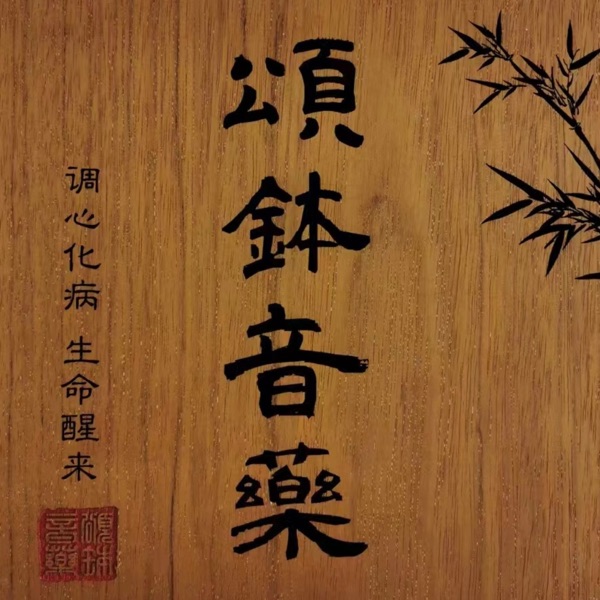 頌鉢音藥
调心化病 生命醒来